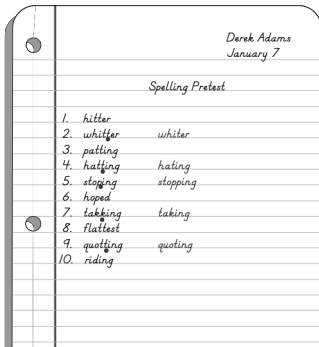 Derek Adams
January 7
Spelling Pretest
1. hitter
2. whitter whiter
3. patting
4. hatting hating
5. stoping stopping
6. hoped
7. takking taking
8. flattest
9. quotting quoting
10. riding